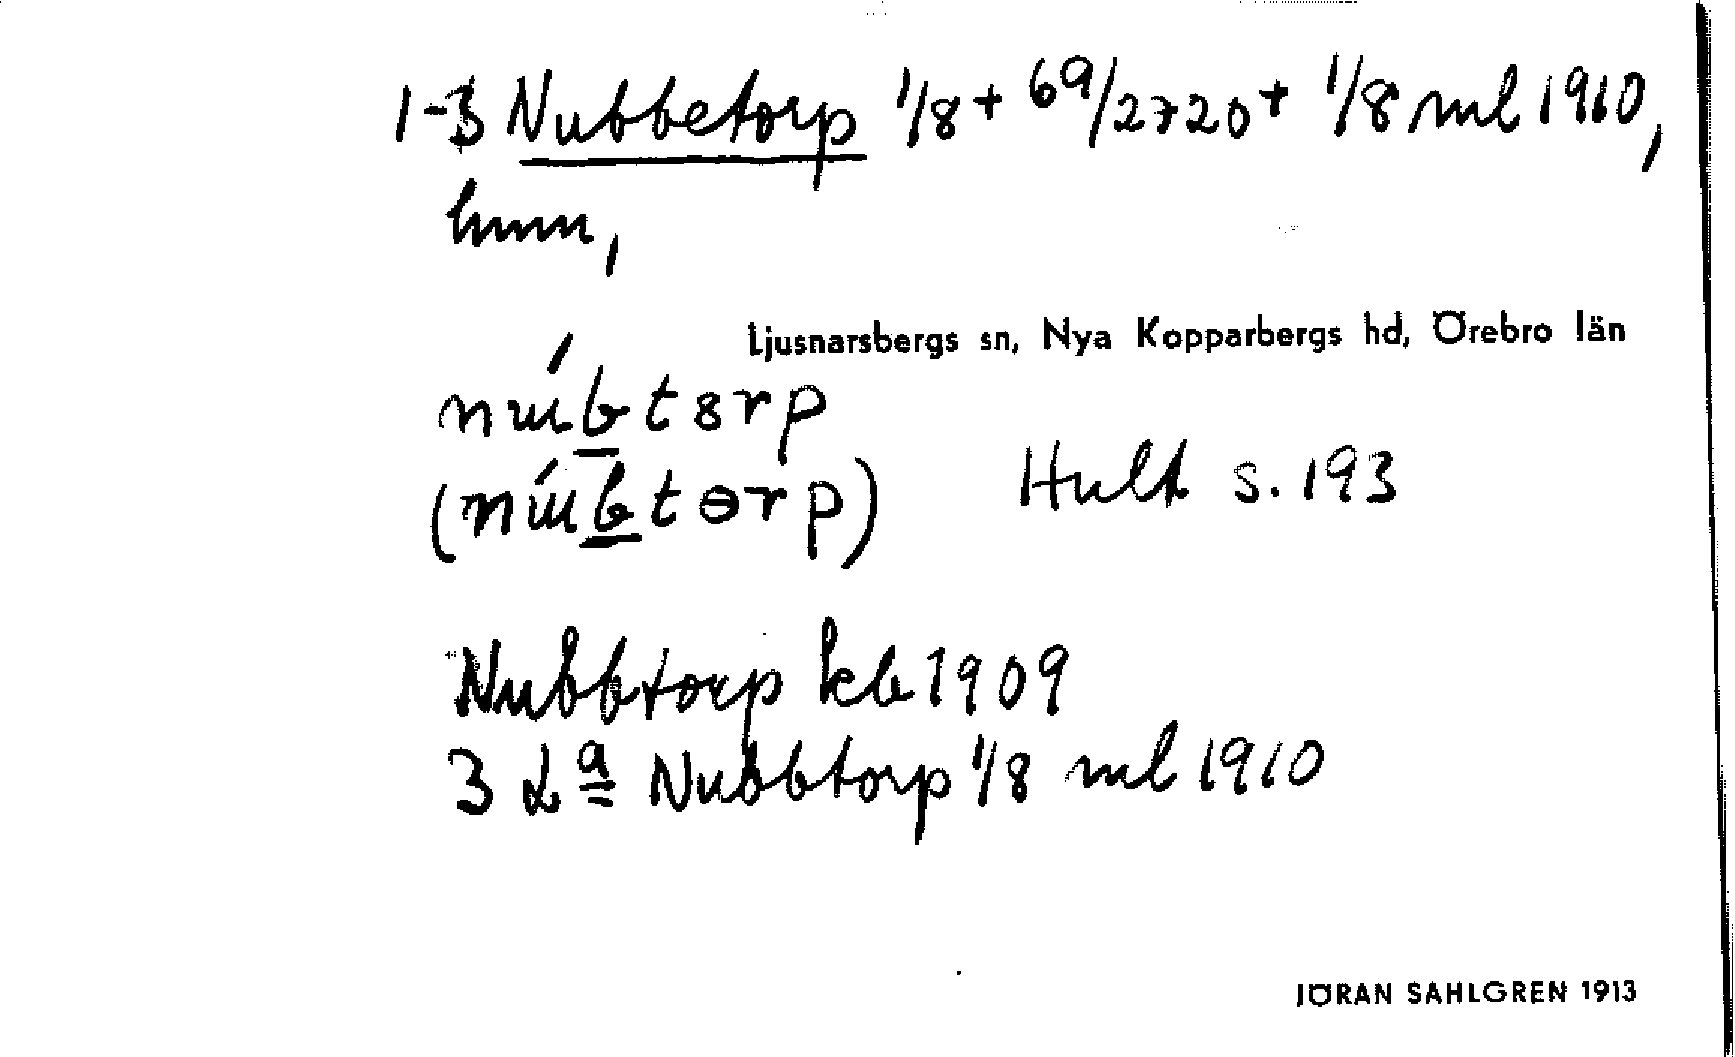 1-3 Nubbetorp 1/8 + 69/2720 + 1/8 ml 1910,
hmn,
Ljusnarsbergs sn, Nya Kopparbergs hd, Örebro län
Hult s. 193
Nubbtorp kb 1909
3 La Nubbtorp 1/8 ml 1910
JÖRAN SAHLGREN 1913